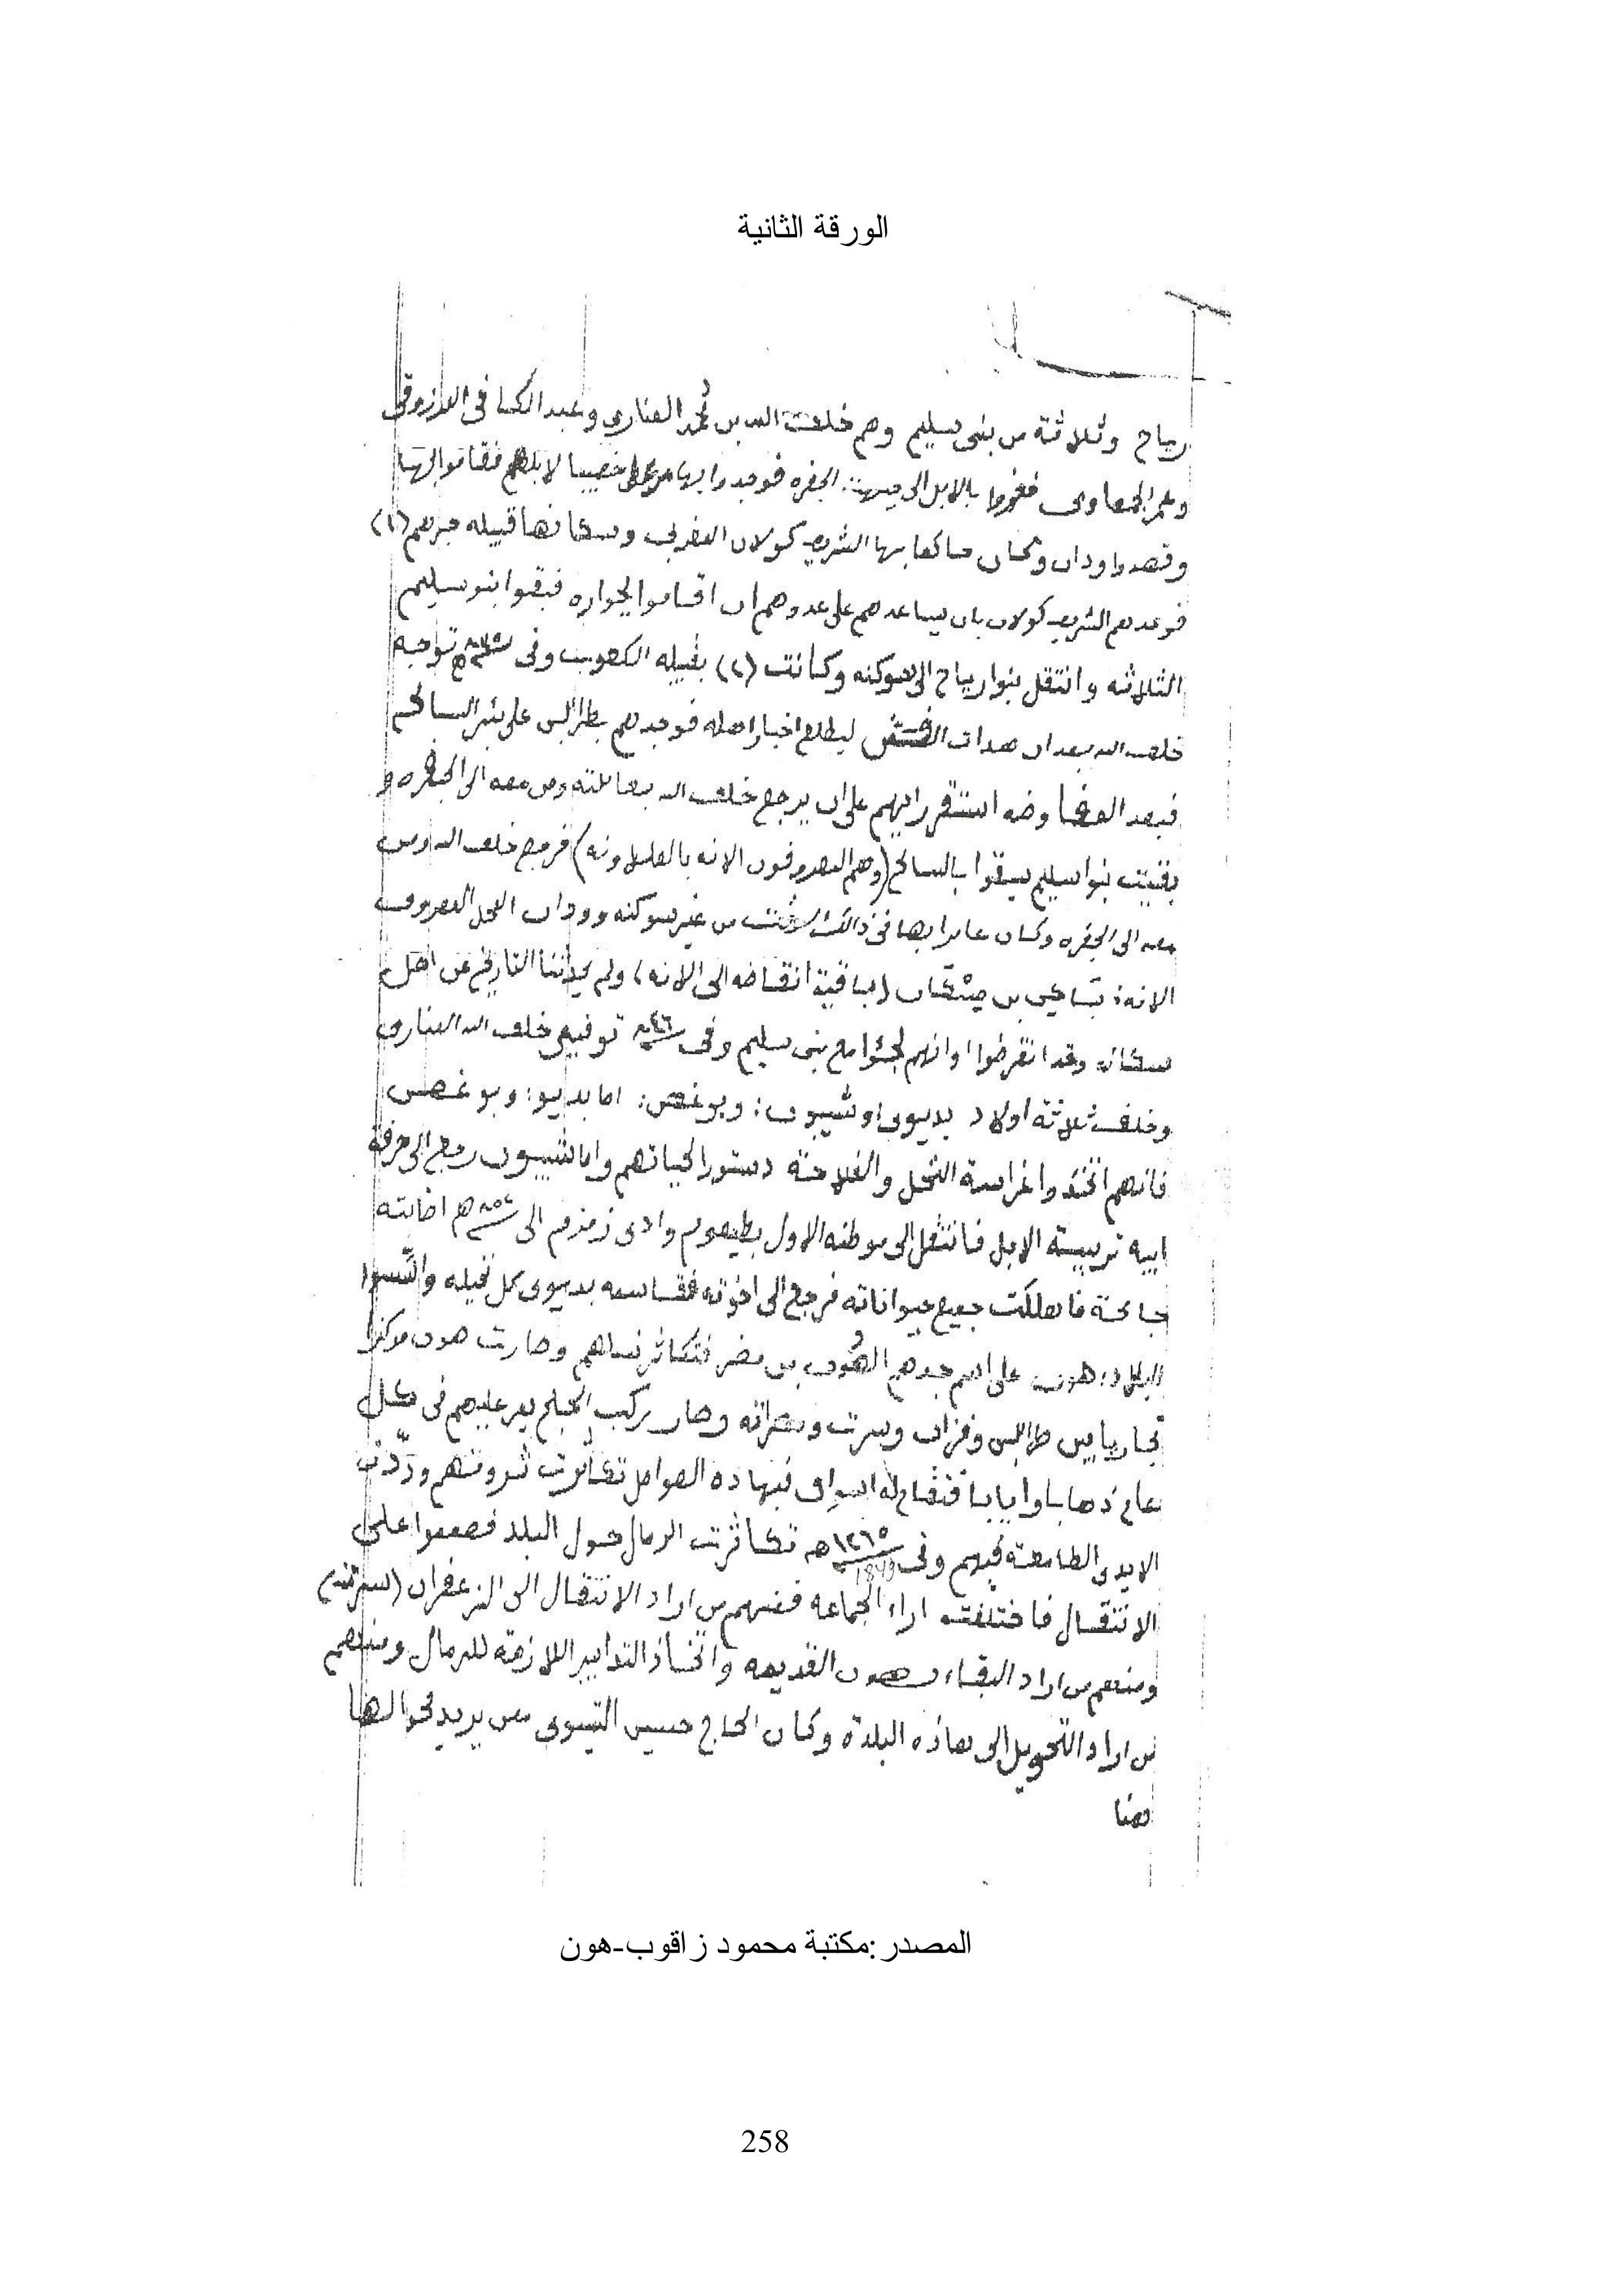 الورقة الثانية
رياح وثلاثة من بنى سليم وهم خلف الله بن محمد الهنارى وعبد الكافى المرزوقى
وعمر المعاوى بالابل الى جهة الجفره فوجدوا بها مرعى خصيبا لابلهم فقاموا بها
وقصدوا ودان وكان حاكما بها الشريف كولان المغربى وسكانها قبيله جرهم (١)
فوعدهم الشريف كولان بان يساعدهم على عدوهم ان اقاموا بجواره فبقوا بنو سليم
الثلاثه وانتقل بنوا رياح الى سوكنه وكانت (٢) بقبيله الكعوب وفى توجه
خلف الله بعد ان هدات الفتن ليطلع اخبار اهله فوجدهم بطرابلس على بئر الساحل
فبعد المفاوضه استقر رايهم على ان يرجع خلف الله بعائلته ومن معه الى الجفره و
بقيت بنوا سليم بالساحل (وهم المعروفون الانه بالعلاونه) فرجع خلف الله ومن
معه الى الجفره وكان عامرا بها فى ذالك الوقت من غير سوكنه وودان المحل المعروف
الانه: (باقية انقاضه الى الانه) ولم يحدثنا التاريخ عن اهل
سكانه وقد انقرضوا او انهم لجئوا مع بنى سليم وفى ٨٤٦ توفيى خلف الله الهنارى
وخلف ثلاثة اولاد بديوى او شيبون: وبوغصن: اما بديو: وبوغصن
فانهم اتخذوا غراسة النخل والفلاحة دستور لحياتهم واما شيبون رجع الى حرفة
ابيه تربية الابل فانتقل الى موطنه الاول وادى زمزم الى ٨٥٢ هـ اصابته
جائحة فاهلكت جميع حيواناته فرجع الى اخوته فقاسمه بديوى كل نخيله واسسوا
البلاد: هون على اسم جدهم الهون بن مضر فتكاثر نسلهم وصارت هون مركزا
تجاريا بين طرابلس وفزان وسرت ومصراته وصار ركب الحج يمر عليهم فى كل
عام ذهابا وايابا فتقام له اسواق فبهاده العوامل تكاثرت ثروتهم وردت
الايدى الطامعة فيهم وفى ١٢٦٥ هـ تكاثرت الرمال حول البلد فصمموا على
1849
الانتقال فاختلفت اراء الجماعه فمنهم من اراد الانتقال الى الزعفران (سرت)
ومنهم من اراد البقاء بهون القديمه واتخاذ التدابير اللازمة للرمال ومنهم
من اراد التحويل الى هاذه البلدة وكان الحاج حسين التيسوى ممن يريد تحوالها
هنا
المصدر:مكتبة محمود زاقوب-هون
258